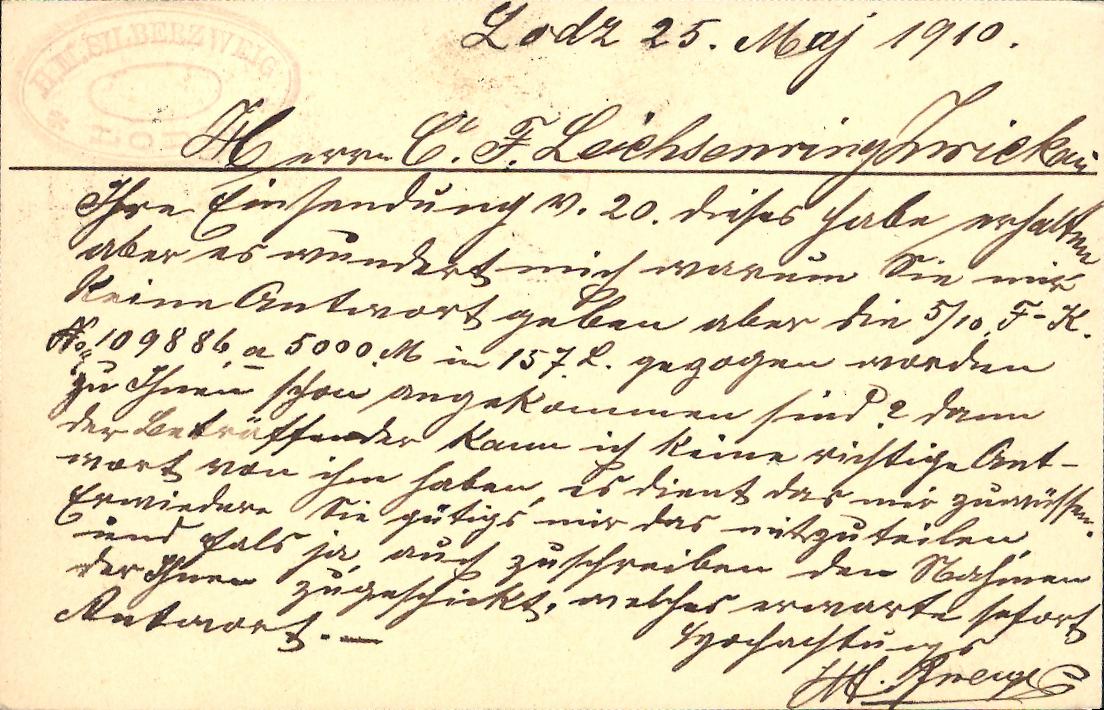 H.M. SILBERZWEIG
* LODZ
Lodz 25. Maj 1910.
Herrn C. F. Leichsenring Zwickau
Ihre Einsendung v. 20. dieses habe erhalten
aber es wundert mich warum Sie mir
Keine Antwort geben aber die 5/10 F-K.
No 109886 a 5000 M in 157. L. gezogen worden
zu Ihnen schon angekommen sind? dann
der Beträffender kann ich keine richtige Ant-
wort von ihm haben, es dient das mir zu
Erwiedern Sie gütigs mir das mitzuteilen,
und fals ja, auch zuschreiben den Nahmen
der Ihnen zugeschickt, welches erwarte sofort
Antwort. —
Hochachtungs